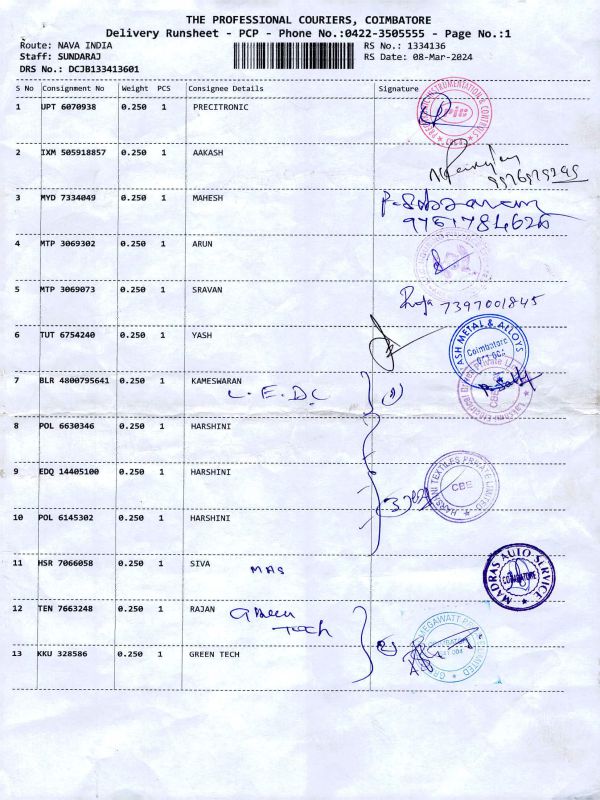 THE PROFESSIONAL COURIERS, COIMBATORE
Delivery Runsheet - PCP - Phone No.:0422-3505555 - Page No.:1
Route: NAVA INDIA RS No.: 1334136
Staff: SUNDARAJ RS Date: 08-Mar-2024
DRS No.: DCJB133413601
S No Consignment No Weight PCS Consignee Details Signature
1 UPT 6070938 0.250 1 PRECITRONIC
2 IXM 505918857 0.250 1 AAKASH
3 MYD 7334049 0.250 1 MAHESH
9751784626
4 MTP 3069302 0.250 1 ARUN
5 MTP 3069073 0.250 1 SRAVAN
Roja 7397001845
6 TUT 6754240 0.250 1 YASH
YASH METAL & ALLOYS
Coimbatore
7 BLR 4800795641 0.250 1 KAMESWARAN
L.E.D.C
CBE
8 POL 6630346 0.250 1 HARSHINI
9 EDQ 14405100 0.250 1 HARSHINI
HARSINI TEXTILES PRIVATE LIMITED
CBE
10 POL 6145302 0.250 1 HARSHINI
11 HSR 7066058 0.250 1 SIVA
MAS
MADRAS AUTO SERVICE
COIMBATORE
12 TEN 7663248 0.250 1 RAJAN
Green
Tech
13 KKU 328586 0.250 1 GREEN TECH